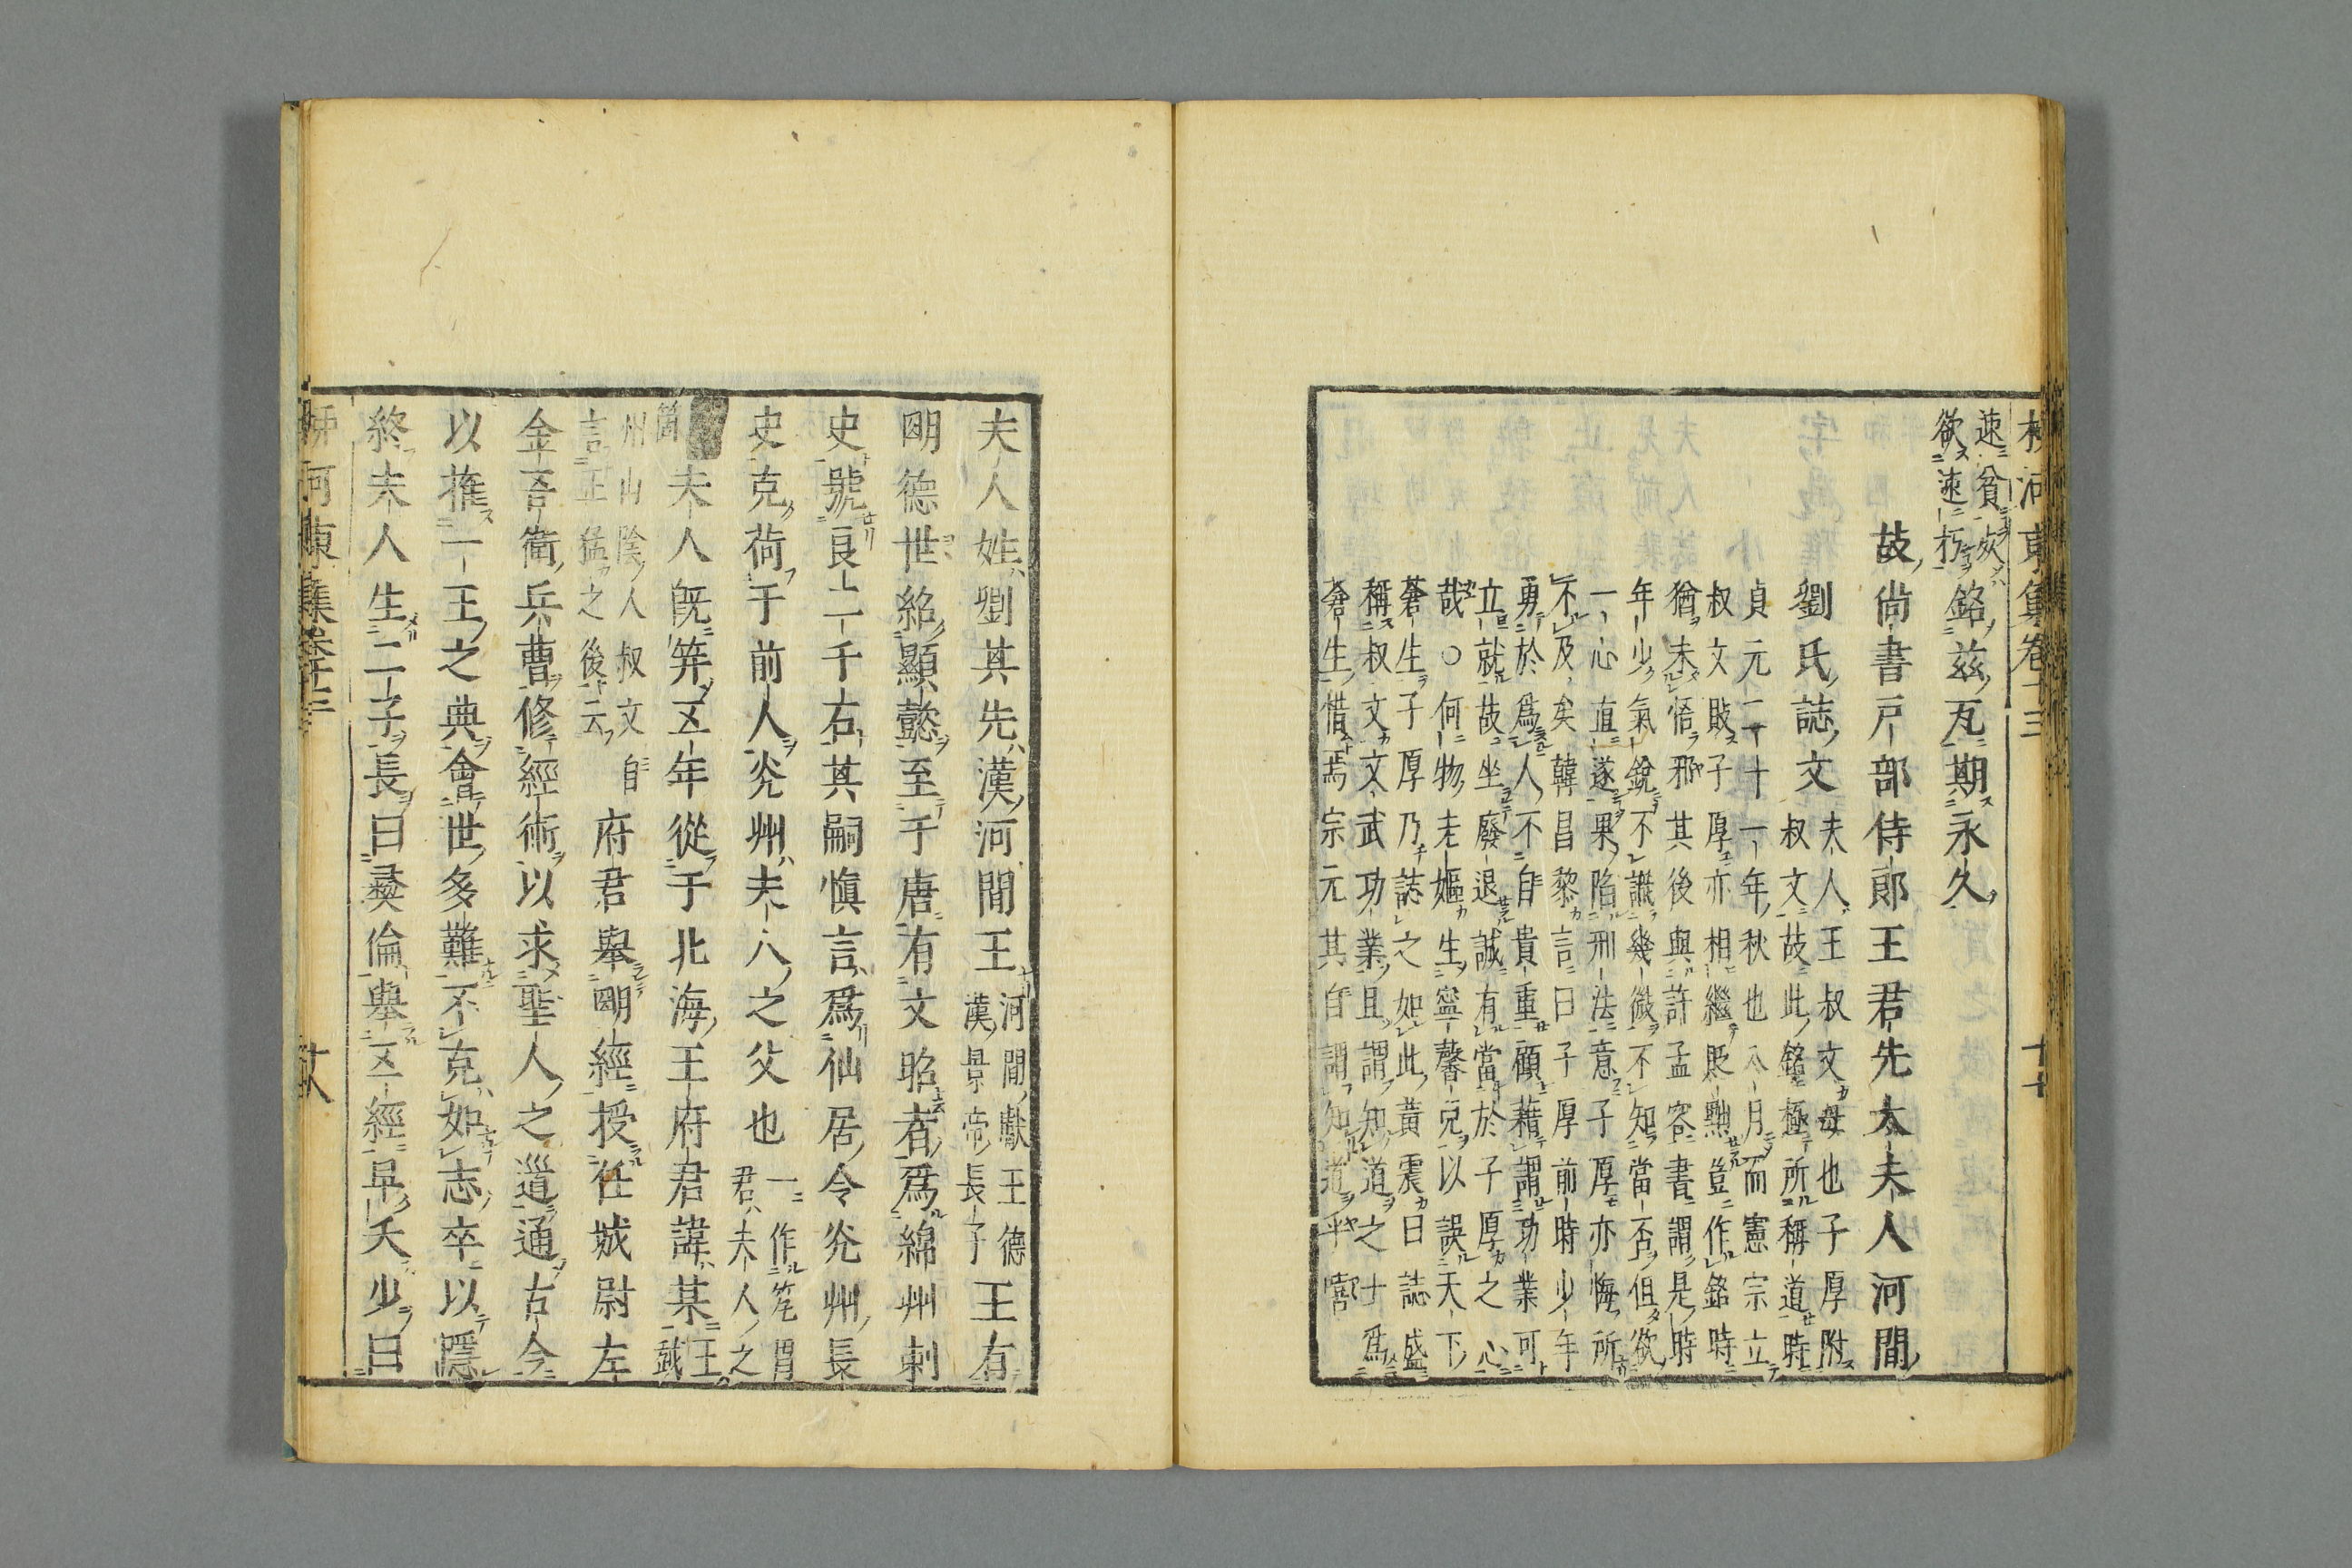 柳河東集卷十三
速貧焱銘茲瓦期永久
欲速朽
故尚書戸部侍郎王君先太夫人河間
劉氏誌文夫人王叔文母也子厚附
叔文故此銘極所稱道時
貞元二十一年秋也八月而憲宗立
叔文敗子厚亦相繼貶黜豈作銘時
猶未悟邪其後與許孟容書謂是時
年少氣銳不識幾微不知當否但欲
一心直遂果陷刑法意子厚亦悔所
不及矣韓昌黎言曰子厚前時少年
勇於爲人不自貴重顧藉謂功業可
立就故坐廢退誠有當於子厚之心
哉○何物老嫗生寧馨兒以誤天下
蒼生子厚乃誌之如此黃震曰誌盛
稱叔文文武功業且謂知道之士爲
蒼生惜焉宗元其自謂知道乎噫
夫人姓劉其先漢河間王河間獻王德漢景帝長子王有
明德世紹顯懿至于唐有文昭者爲綿州刺
史號良二千石其嗣愼言爲仙居令兖州長
史克荷于前人兖州夫人之父也一作笄謂君夫人之
夫人旣笄五年從于北海王府君諱某王
州山陰人叔文自
言王猛之後云府君舉明經授任城尉左
金吾衞兵曹修經術以求聖人之道通古今
以推二王之典會世多難不克如志卒以隱
終夫人生二子長曰彝倫舉五經早夭少曰
柳河東集卷十三